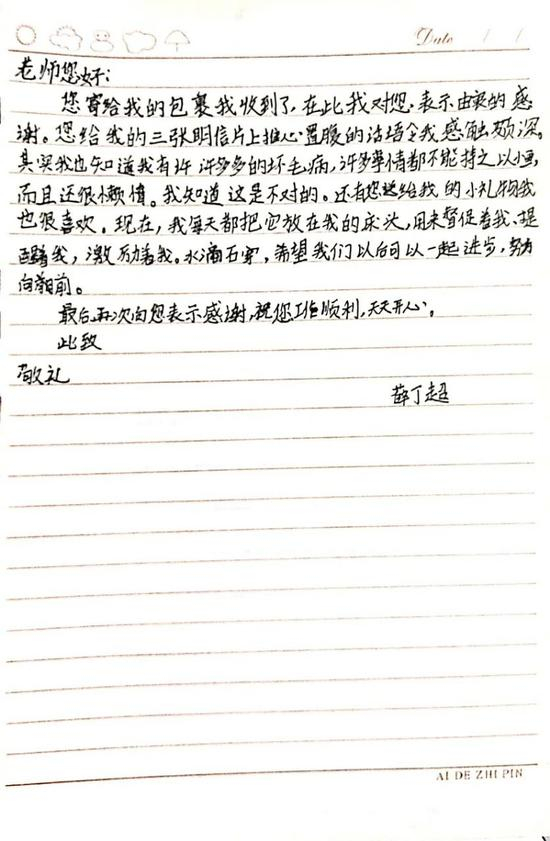 Date / /
老师您好:
您寄给我的包裹我收到了,在此我对您,表示由衷的感
谢。您给我的三张明信片上推心置腹的话语令我感触颇深。
其实我也知道我有许许多多的坏毛病,许多事情都不能持之以恒,
而且还很懒惰。我知道这是不对的。还有您送给我的小礼物我
也很喜欢。现在,我每天都把它放在我的床头,用来督促着我、提
醒着我,激励着我。水滴石穿,希望我们以后可以一起进步,努力
向前。
最后,再次向您表示感谢,祝您工作顺利,天天开心。
此致
敬礼
薛丁超
AI DE ZHI PIN